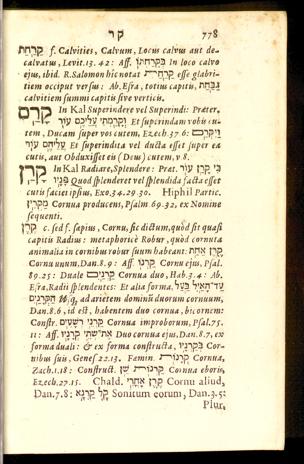 קר 778
קָרַחַת f. Calvities, Calvum, Locus calvus aut de-
calvatus, Levit. 13. 42: Aff. בְּקָרַחְתּוֹ In loco calvo
ejus, ibid. R. Salomon hîc notat קרחת esse glabri-
tiem occiput versus: Ab. Esra, totius capitis, גבחת
calvitiem summi capitis sive verticis.
קָרַם In Kal Superindere vel Superindi: Præter.
וְקָרַמְתִּי עֲלֵיכֶם עוֹר Et superindam vobis cu-
tem, Ducam super vos cutem, Ezech. 37. 6:
וַיִּקְרַם עֲלֵיהֶם עוֹר Et superindita vel ducta esset super ea
cutis, aut Obduxisset eis (Deus) cutem, v 8.
קָרַן In Kal Radiare, Splendere: Præt. כִּי קָרַן עוֹר
פָּנָיו Quod splenderet vel splendida facta esset
cutis faciei ipsius, Exo. 34. 29. 30. Hiphil Partic.
מַקְרִין Cornua producens, Psalm 69. 32, ex Nomine
sequenti.
קֶרֶן c. sed f. sæpius, Cornu, sic dictum, quòd sit quasi
capitis Radius: metaphoricè Robur, quòd cornuta
animalia in cornibus robur suum habeant. קֶרֶן אַחַת
Cornu unum, Dan. 8. 9: Aff. קַרְנוֹ Cornu ejus, Psal.
89. 25: Duale קַרְנַיִם Cornua duo, Hab. 3. 4: Ab.
Esra, Radii splendentes: Et alia forma, עַד־הָאַיִל בַּעַל
הַקְּרָנַיִם Usq; ad arietem dominũ duorum cornuum,
Dan. 8. 6, id est, habentem duo cornua, bicornem:
Constr. קַרְנֵי רְשָׁעִים Cornua improborum, Psal. 75.
11: Aff. אֶת־שְׁתֵּי קְרָנָיו Duo cornua ejus, Dan. 8. 7, ex
forma duali: & ex forma constructa, בְּקַרְנָיו Cor-
nibus suis, Genes 22. 13. Femin. קְרָנוֹת Cornua,
Zach. 1. 18: Construct. קַרְנוֹת שֵׁן Cornua eboris,
Ezech. 27. 15. Chald. קֶרֶן אָחֳרִי Cornu aliud,
Dan. 7. 8: קָל קַרְנָא Sonitum cornu, Dan. 3. 5:
Plur.